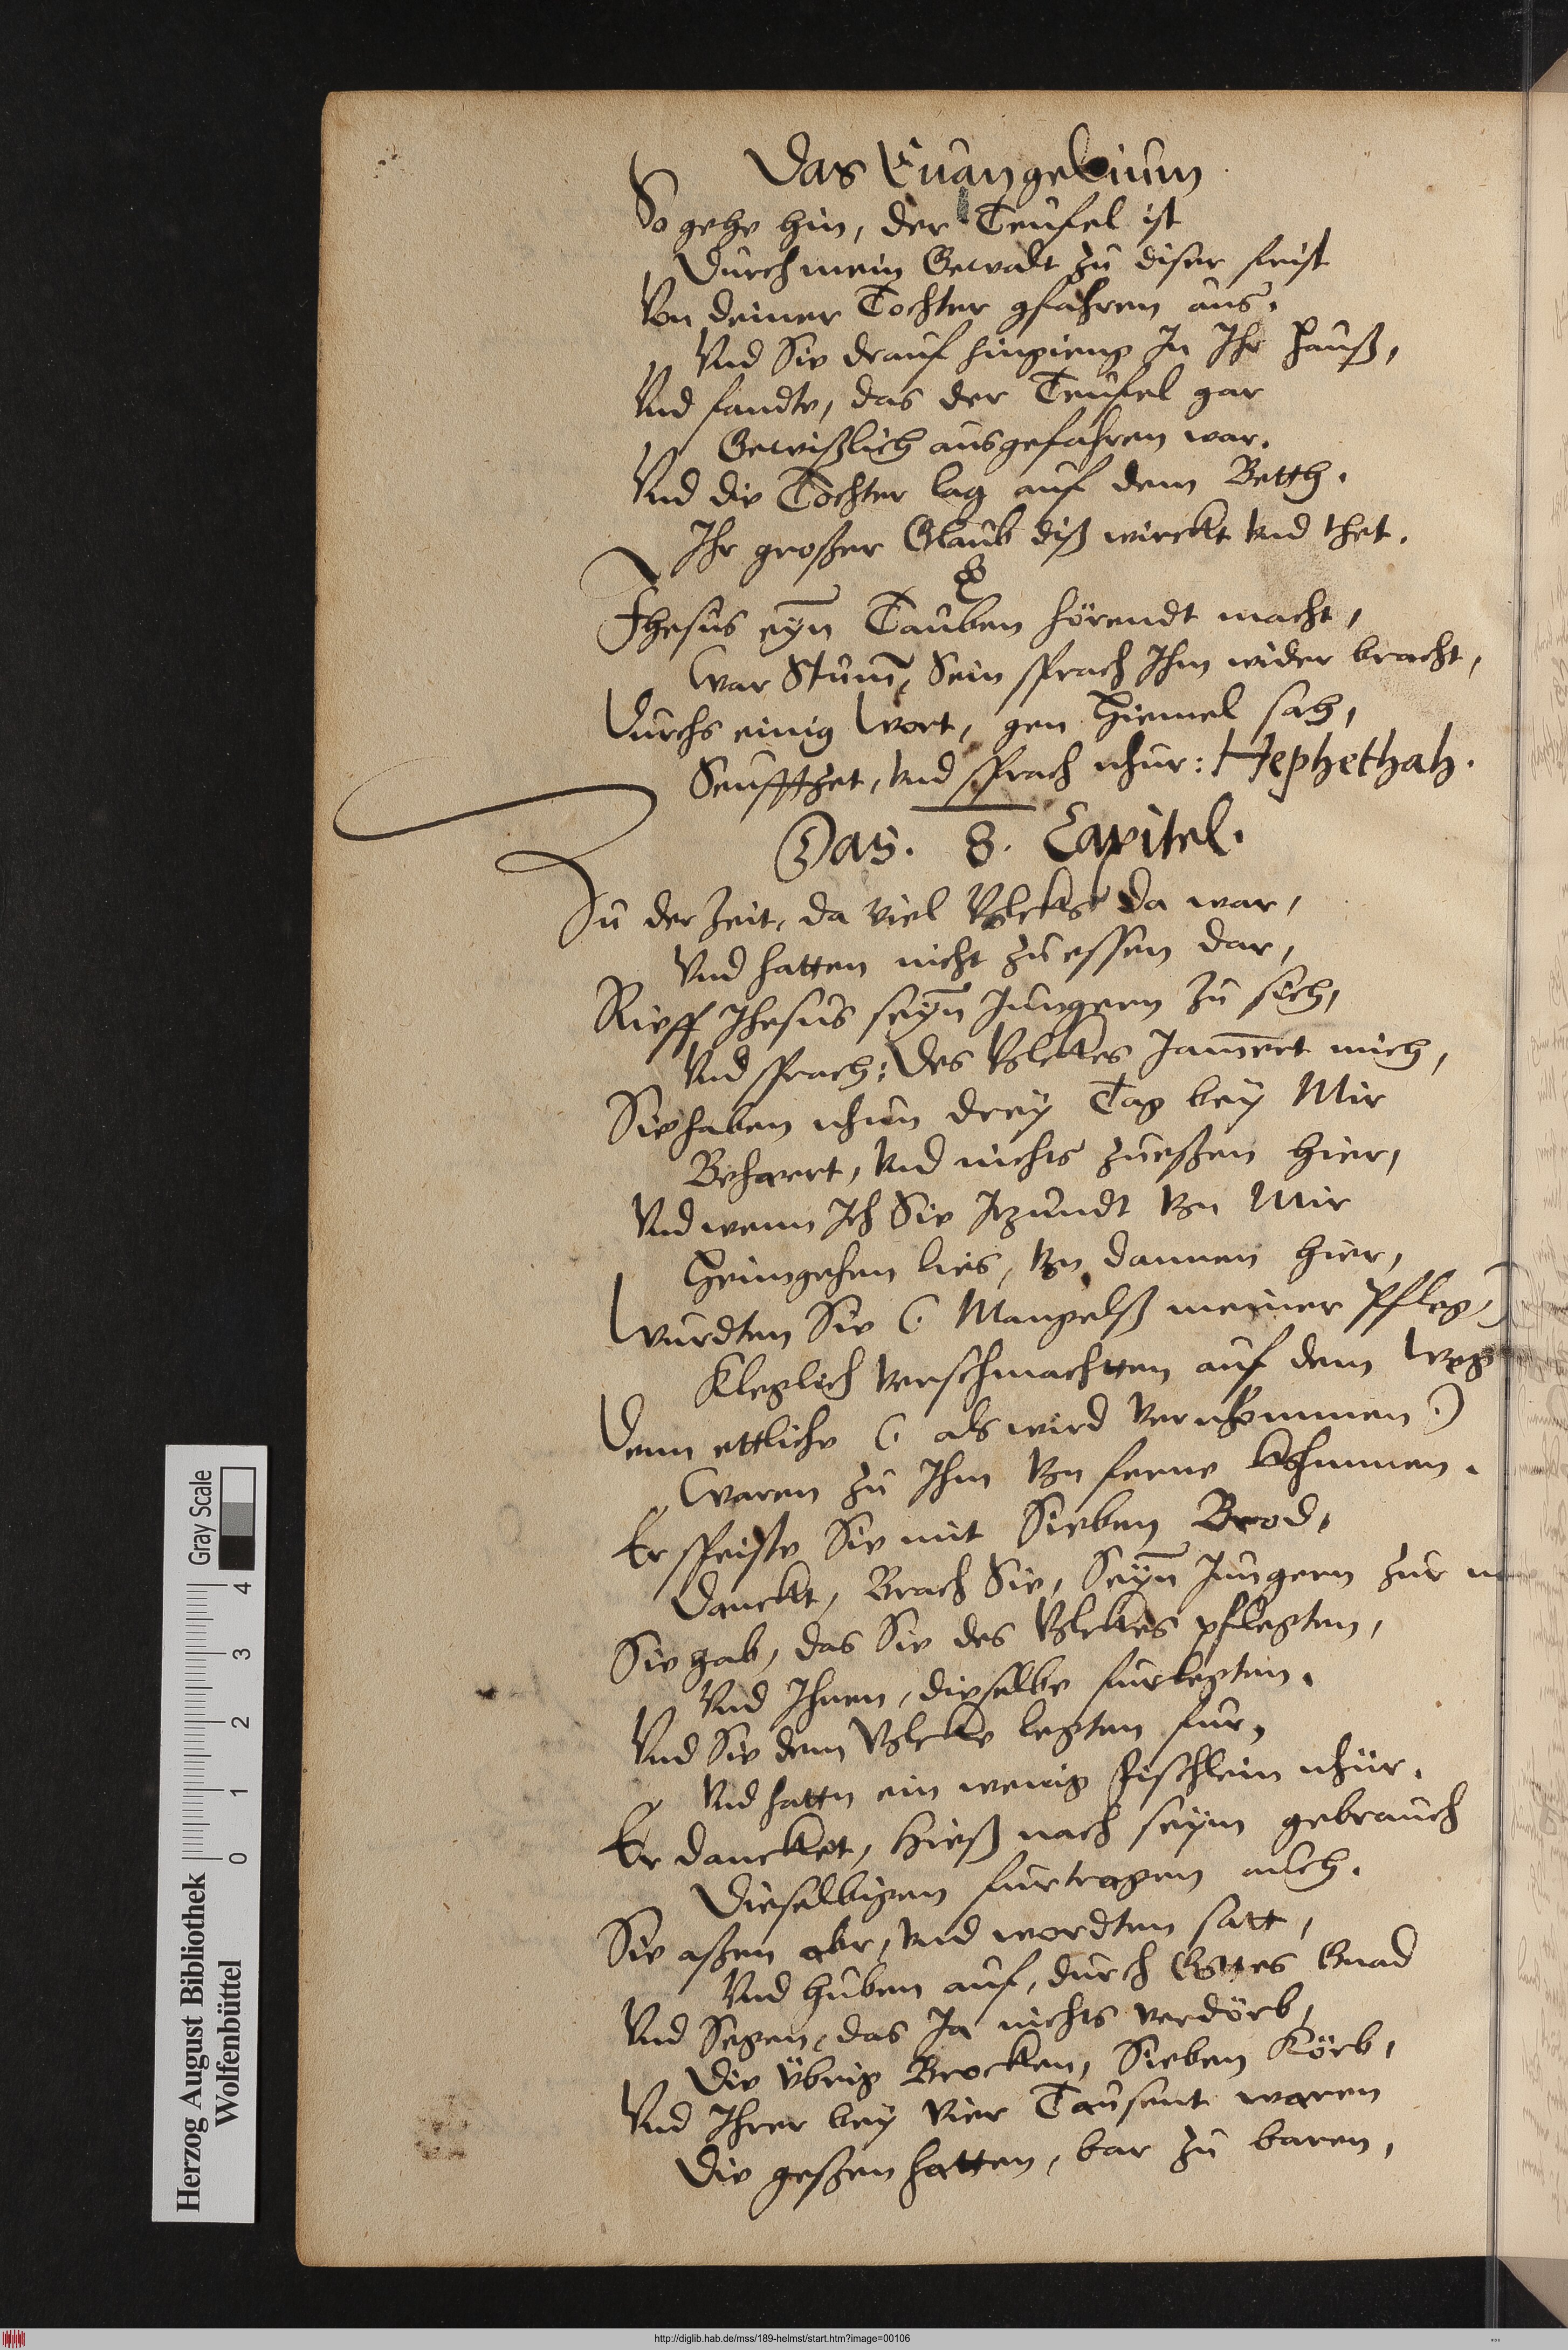 Das Euangelium
So gehe hin, der Teufel ist
Durch mein Gewalt zu diser frist
Von deiner Tochter gfahren aus.
Vnd Sie drauf hingieng In Ihr Hauß,
Vnd fandte, das der Teufel gar
Gewißlich ausgefahren war.
Vnd die Tochter lag auf dem Betth.
Ihr großer Glaub diß wirckt vnd thet.
Jhesus eyn̄ Tauben hörendt macht,
War Stum̄, Sein sprach Ihm wider bracht,
Durchs einig Wort, gen Hiemel sah,
Seufftzet, vnd sprach nhur: Hephethah.
Das. 8. Capitel.
Zu der Zeit, da viel Volcks da war,
Vnd hatten nicht zu essen dar,
Rieff Jhesus seyn̄ Jungern zu sich,
Vnd sprach: Des Volckes Jam̄ert mich,
Sie haben nhun drey Tag bey Mir
Beharrt, vnd nichts zueßen hier,
Vnd wenn Ich Sie Itzundt von Mir
Heimgehen lies, von dannen hier,
Wurdten Sie (. Mangelß meiner Pfleg.)
Kleglich verschmachten auf dem Weg
Denn ettliche (. als wird vernhommen.)
Waren zu Ihm von ferne khommen.
Er speiste Sie mit Sieben Brod,
Danckt, Brach Sie, Seyn̄ Jungern zur
Sie gab, das Sie des Volckes pflegten,
Vnd Ihnen, dieselbe furlegten.
Vnd Sie dem Volcke legten fur,
Vnd hattn ein wenig Fischlein nhür.
Er dancket, hieß nach seym gebrauch
Dieselbigen furtragen auch.
Sie aßen aber, vnd wordten satt,
Vnd huben auf, durch Gottes Gnad
Vnd Segen, das Ja nichts verdörb,
Die übrig Brocken, Sieben Körb,
Vnd Ihrer bey Vier Tausent waren
Die geßen hatten, bar zu baren,
Herzog August Bibliothek
Wolfenbüttel
0 1 2 3 4
Gray Scale
http://diglib.hab.de/mss/189-helmst/start.htm?image=00106